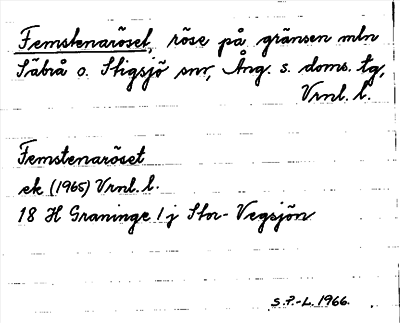 Femstenaröset, röse på gränsen mln
Säbrå o. Stigsjö snr, Ång. s. doms. tg,
Vrnl. l.
Femstenaröset
ek (1965) Vrnl. l.
18 H Graninge 1 j Stor-Vegsjön
S.P.-L. 1966.